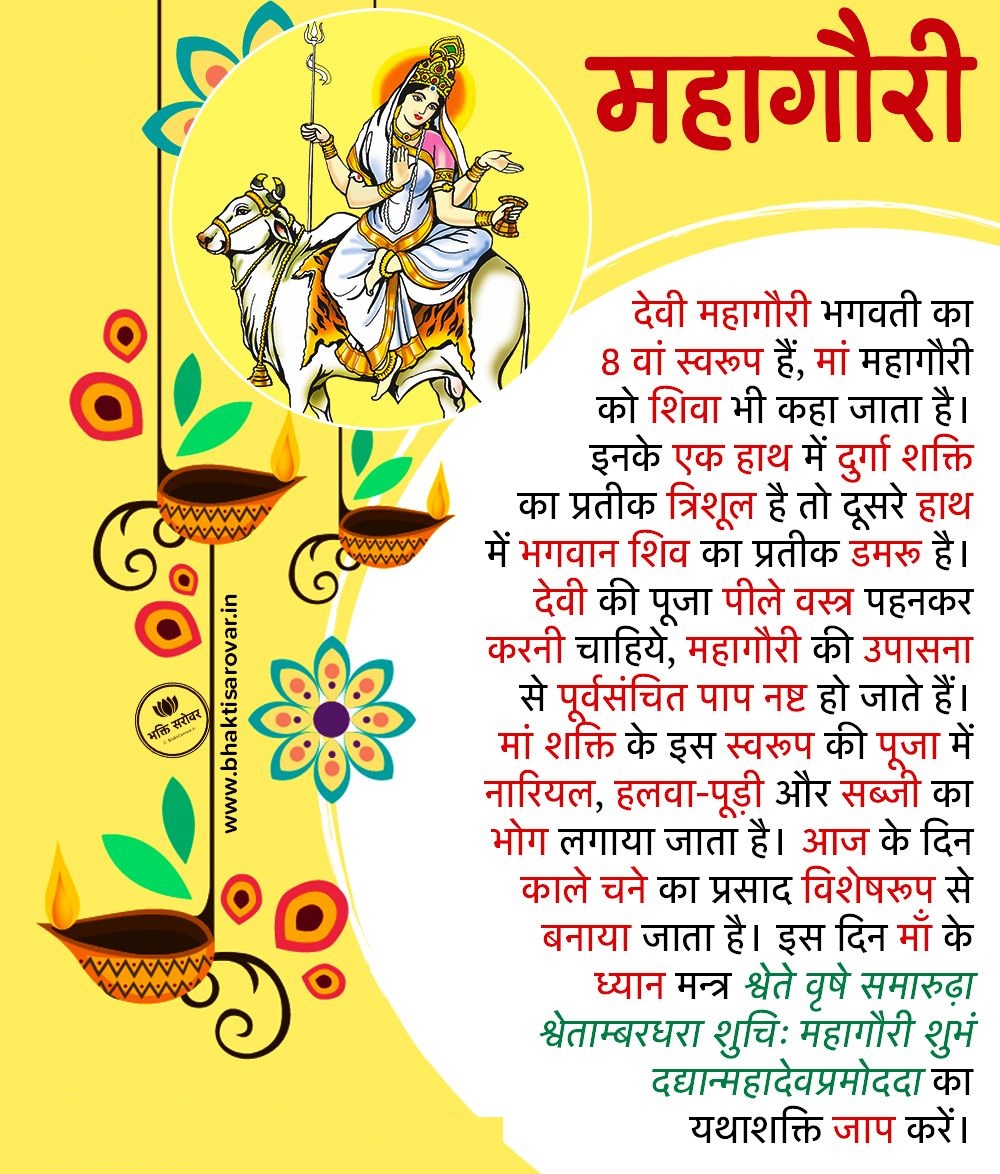 महागौरी
देवी महागौरी भगवती का
8 वां स्वरूप हैं, मां महागौरी
को शिवा भी कहा जाता है।
इनके एक हाथ में दुर्गा शक्ति
का प्रतीक त्रिशूल है तो दूसरे हाथ
में भगवान शिव का प्रतीक डमरू है।
देवी की पूजा पीले वस्त्र पहनकर
करनी चाहिये, महागौरी की उपासना
से पूर्वसंचित पाप नष्ट हो जाते हैं।
मां शक्ति के इस स्वरूप की पूजा में
नारियल, हलवा-पूड़ी और सब्जी का
भोग लगाया जाता है। आज के दिन
काले चने का प्रसाद विशेषरूप से
बनाया जाता है। इस दिन माँ के
ध्यान मन्त्र श्वेते वृषे समारुढ़ा
श्वेताम्बरधरा शुचिः महागौरी शुभं
दद्यान्महादेवप्रमोददा का
यथाशक्ति जाप करें।
www.bhaktisarovar.in
भक्ति सरोवर